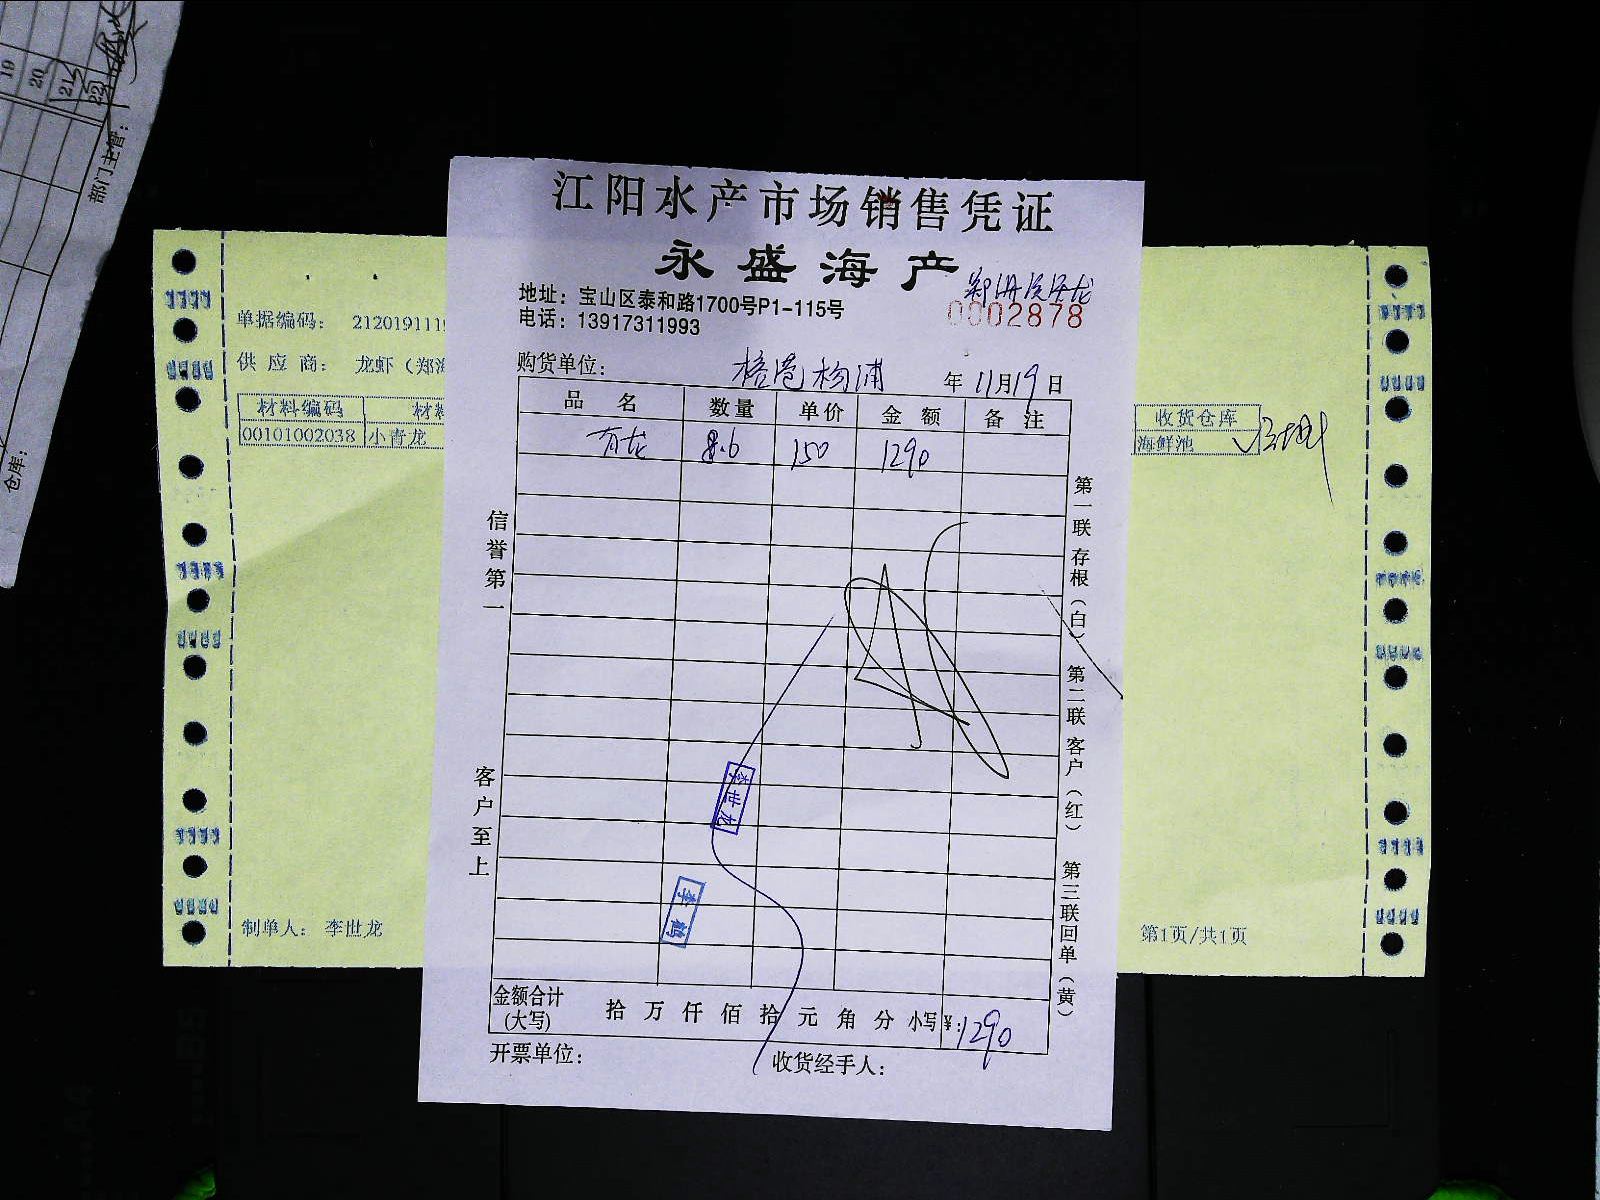 19
20
21
22
部门主管：
仓库：
江阳水产市场销售凭证
永盛海产
地址：宝山区泰和路1700号P1-115号
0002878
电话：13917311993
购货单位： 杨浦 年 11月19日
品名 数量 单价 金额 备注
青龙 8.6 150 1290
信誉第一
客户至上
第一联 存根（白） 第二联 客户（红） 第三联 回单（黄）
李世龙
李鹤
金额合计(大写) 拾 万 仟 佰 拾 元 角 分 小写¥：1290
开票单位： 收货经手人：
单据编码： 2120191119
供应商： 龙虾（郑海
材料编码 材料
00101002038 小青龙
收货仓库
海鲜池
制单人： 李世龙
第1页/共1页